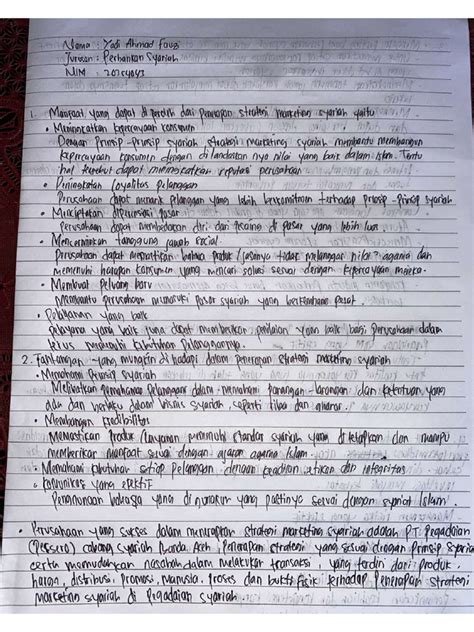 Nama : Yadi Ahmad Fauzi
Jurusan : Perbankan Syariah
NIM : 20254043
1. Manfaat yang dapat di peroleh dari penerapan strategi marketing syariah yaitu
• Meningkatkan kepercayaan konsumen
Dengan prinsip-prinsip syariah strategi marketing syariah membantu membangun
kepercayaan konsumen dengan di landaskan nya nilai yang baik dalam islam. Tentu
hal tersebut dapat meningkatkan reputasi perusahaan
• Peningkatan loyalitas pelanggan
Perusahaan dapat menarik pelanggan yang lebih berkomitmen terhadap prinsip-prinsip syariah
• Menciptakan diferensiasi pasar
Perusahaan dapat membedakan diri dari pesaing di pasar yang lebih luas
• Mencerminkan tanggung jawab social
Perusahaan dapat memastikan bahwa produk / jasanya tidak melanggar nilai agamis dan
memenuhi harapan konsumen yang mencari solusi sesuai dengan kepercayaan mereka.
• Membuat peluang baru
Membantu perusahaan memasuki pasar syariah yang berkembang pesat.
• Pelayanan yang baik
pelayanan yang baik juga dapat memberikan penilaian yang baik bagi perusahaan dalam
terus memenuhi kebutuhan pelanggannya.
2. Tantangan yang mungkin di hadapi dalam penerapan strategi marketing syariah
• Memahami prinsip syariah
Melibatkan pemahaman pelanggan dalam memahami larangan-larangan dan ketentuan yang
ada dan berlaku dalam bisnis syariah, seperti riba dan gharar.
• Membangun kredibilitas
Memastikan produk / layanan memenuhi standar syariah yang di tetapkan dan mampu
memberikan manfaat sesuai dengan ajaran agama islam
• Memahami kebutuhan setiap pelanggan dengan keadilan, etika dan integritas
• komunikasi yang efektif
Penggunaan bahasa yang di gunakan yang pastinya sesuai dengan syariat islam
• Perusahaan yang sukses dalam menerapkan strategi marketing syariah adalah PT. Pegadaian
(Persero) cabang syariah Banda Aceh. Penerapan strategi yang sesuai dengan prinsip syariah
serta memudahkan nasabah dalam melakukan transaksi, yang terdiri dari produk,
harga, distribusi, promosi, manusia, proses dan bukti fisik terhadap penerapan strategi
marketing syariah di pegadaian syariah.